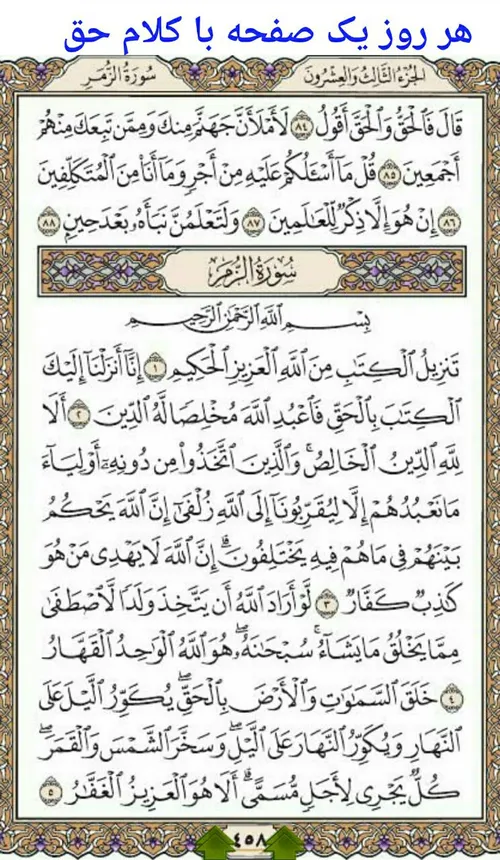 هر روز یک صفحه با کلام حق
الجزء الثالث والعشرون
سورة الزمر
قَالَ فَٱلْحَقُّ وَٱلْحَقَّ أَقُولُ ٨٤ لَأَمْلَأَنَّ جَهَنَّمَ مِنكَ وَمِمَّن تَبِعَكَ مِنْهُمْ
أَجْمَعِينَ ٨٥ قُلْ مَآ أَسْـَٔلُكُمْ عَلَيْهِ مِنْ أَجْرٍ وَمَآ أَنَا۠ مِنَ ٱلْمُتَكَلِّفِينَ
٨٦ إِنْ هُوَ إِلَّا ذِكْرٌ لِّلْعَـٰلَمِينَ ٨٧ وَلَتَعْلَمُنَّ نَبَأَهُۥ بَعْدَ حِينٍ ٨٨
سورة الزمر
بِسْمِ ٱللَّهِ ٱلرَّحْمَـٰنِ ٱلرَّحِيمِ
تَنزِيلُ ٱلْكِتَـٰبِ مِنَ ٱللَّهِ ٱلْعَزِيزِ ٱلْحَكِيمِ ١ إِنَّآ أَنزَلْنَآ إِلَيْكَ
ٱلْكِتَـٰبَ بِٱلْحَقِّ فَٱعْبُدِ ٱللَّهَ مُخْلِصًا لَّهُ ٱلدِّينَ ٢ أَلَا
لِلَّهِ ٱلدِّينُ ٱلْخَالِصُ ۚ وَٱلَّذِينَ ٱتَّخَذُوا۟ مِن دُونِهِۦٓ أَوْلِيَآءَ
مَا نَعْبُدُهُمْ إِلَّا لِيُقَرِّبُونَآ إِلَى ٱللَّهِ زُلْفَىٰٓ إِنَّ ٱللَّهَ يَحْكُمُ
بَيْنَهُمْ فِى مَا هُمْ فِيهِ يَخْتَلِفُونَ ۗ إِنَّ ٱللَّهَ لَا يَهْدِى مَنْ هُوَ
كَـٰذِبٌ كَفَّارٌ ٣ لَّوْ أَرَادَ ٱللَّهُ أَن يَتَّخِذَ وَلَدًا لَّٱصْطَفَىٰ
مِمَّا يَخْلُقُ مَا يَشَآءُ ۚ سُبْحَـٰنَهُۥ ۖ هُوَ ٱللَّهُ ٱلْوَٰحِدُ ٱلْقَهَّارُ
٤ خَلَقَ ٱلسَّمَـٰوَٰتِ وَٱلْأَرْضَ بِٱلْحَقِّ ۖ يُكَوِّرُ ٱلَّيْلَ عَلَى
ٱلنَّهَارِ وَيُكَوِّرُ ٱلنَّهَارَ عَلَى ٱلَّيْلِ ۖ وَسَخَّرَ ٱلشَّمْسَ وَٱلْقَمَرَ ۖ
كُلٌّ يَجْرِى لِأَجَلٍ مُّسَمًّى ۗ أَلَا هُوَ ٱلْعَزِيزُ ٱلْغَفَّـٰرُ ٥
٤٥٨